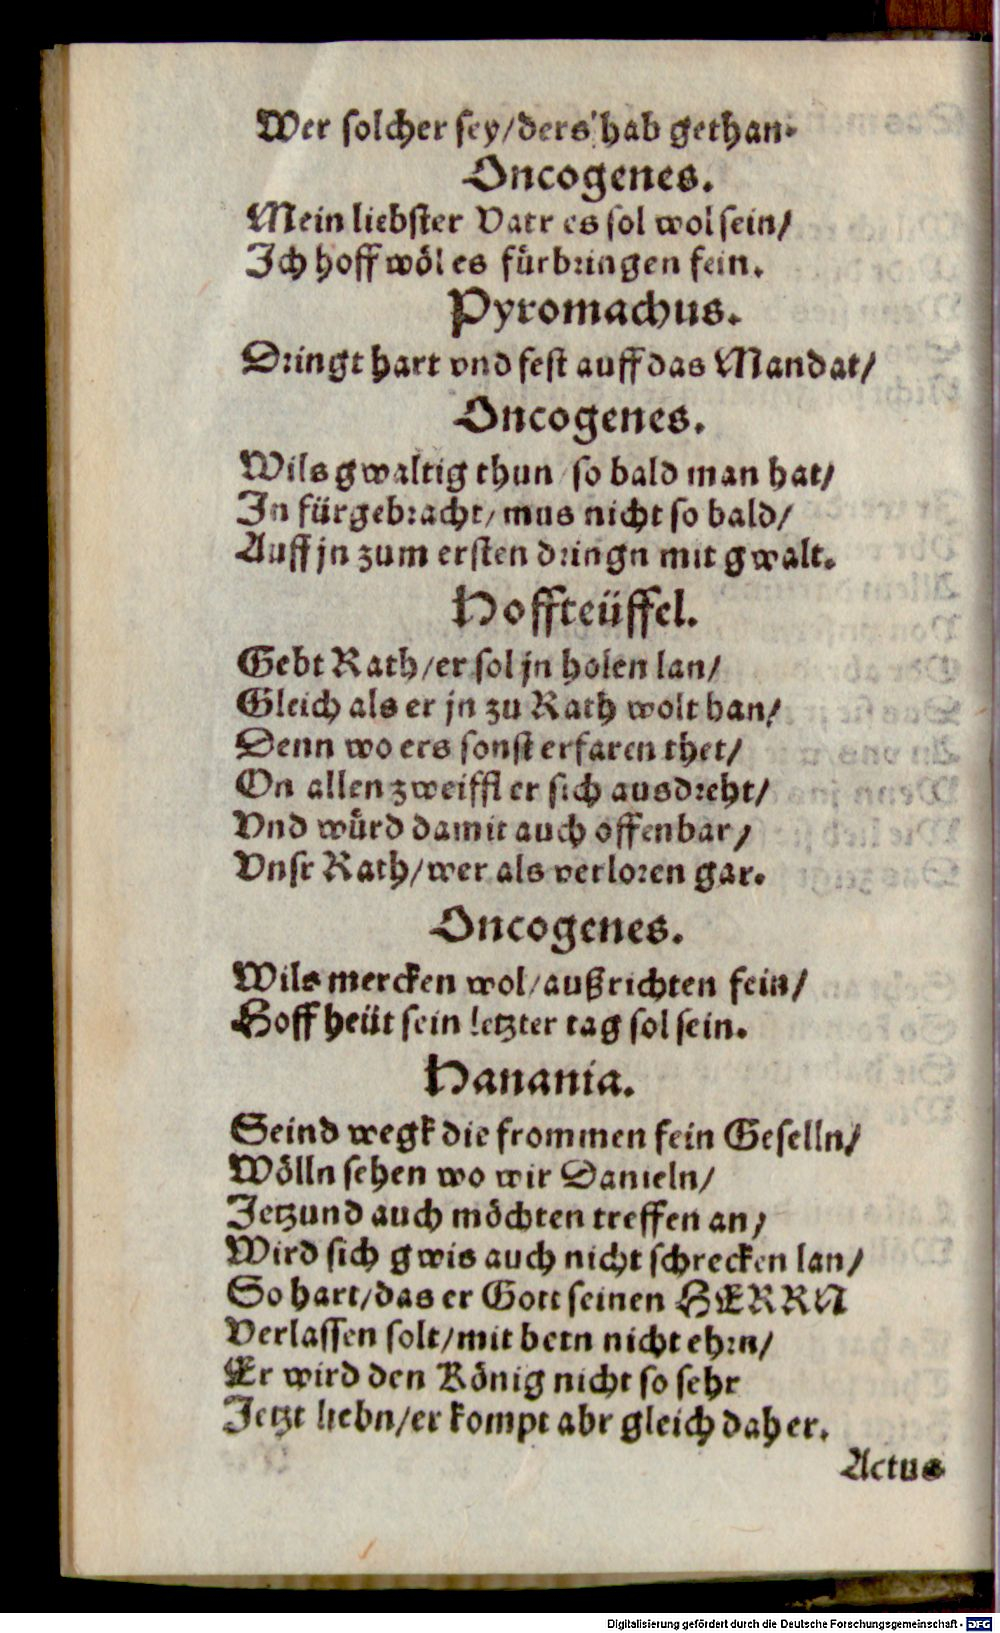 Wer solcher sey/ders hab gethan.
Oncogenes.
Mein liebster Vatr es sol wol sein/
Ich hoff wöl es fürbringen fein.
Pyromachus.
Dringt hart vnd fest auff das Mandat/
Oncogenes.
Wils gwaltig thun so bald man hat/
In fürgebracht/ mus nicht so bald/
Auff jn zum ersten dringn mit gwalt.
Hoffteüffel.
Gebt Rath/er sol jn holen lan/
Gleich als er jn zu Rath wolt han/
Denn wo ers sonst erfaren thet/
On allen zweiffl er sich ausdreht/
Vnd würd damit auch offenbar/
Vnsr Rath/wer als verloren gar.
Oncogenes.
Wils mercken wol/außrichten fein/
Hoff heüt sein letzter tag sol sein.
Hanania.
Seind wegk die frommen fein Geselln/
Wölln sehen wo wir Danieln/
Jetzund auch möchten treffen an/
Wird sich gwis auch nicht schrecken lan/
So hart/das er Gott seinen HERRN
Verlassen solt/mit betn nicht ehrn/
Er wird den König nicht so sehr
Jetzt liebn/er kompt abr gleich daher.
Actus
Digitalisierung gefördert durch die Deutsche Forschungsgemeinschaft - DFG